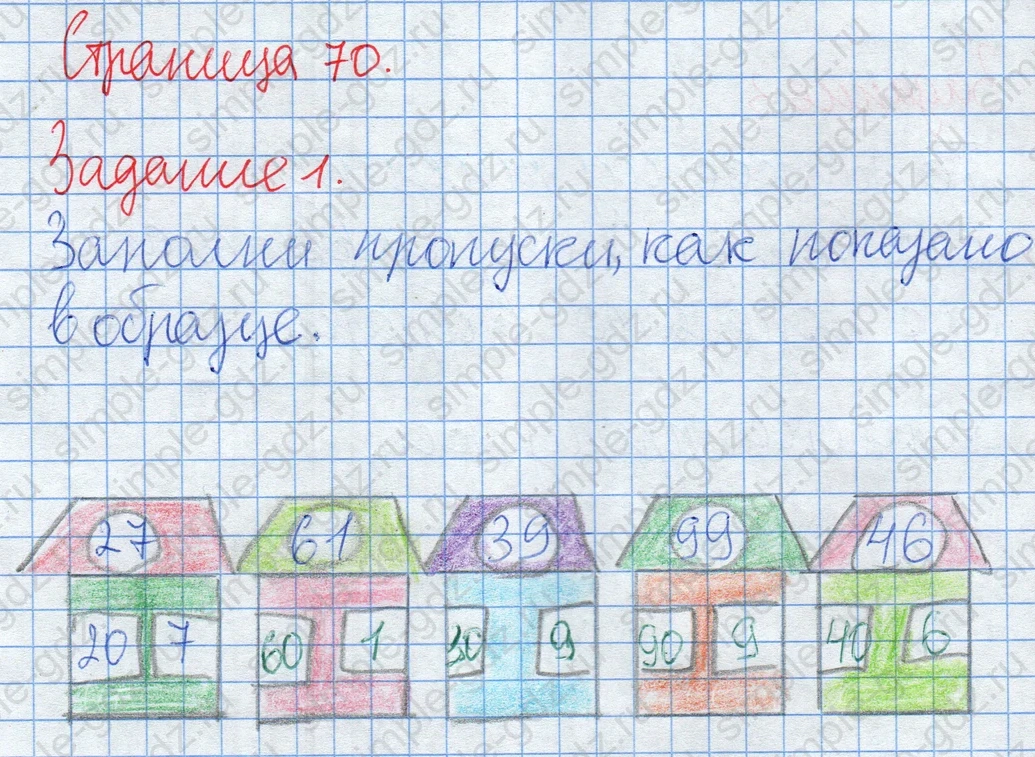 Страница 70.
Задание 1.
Заполни пропуски, как показано
в образце.
27 61 39 99 46
20 7 60 1 30 9 90 9 40 6
simple-gdz.ru